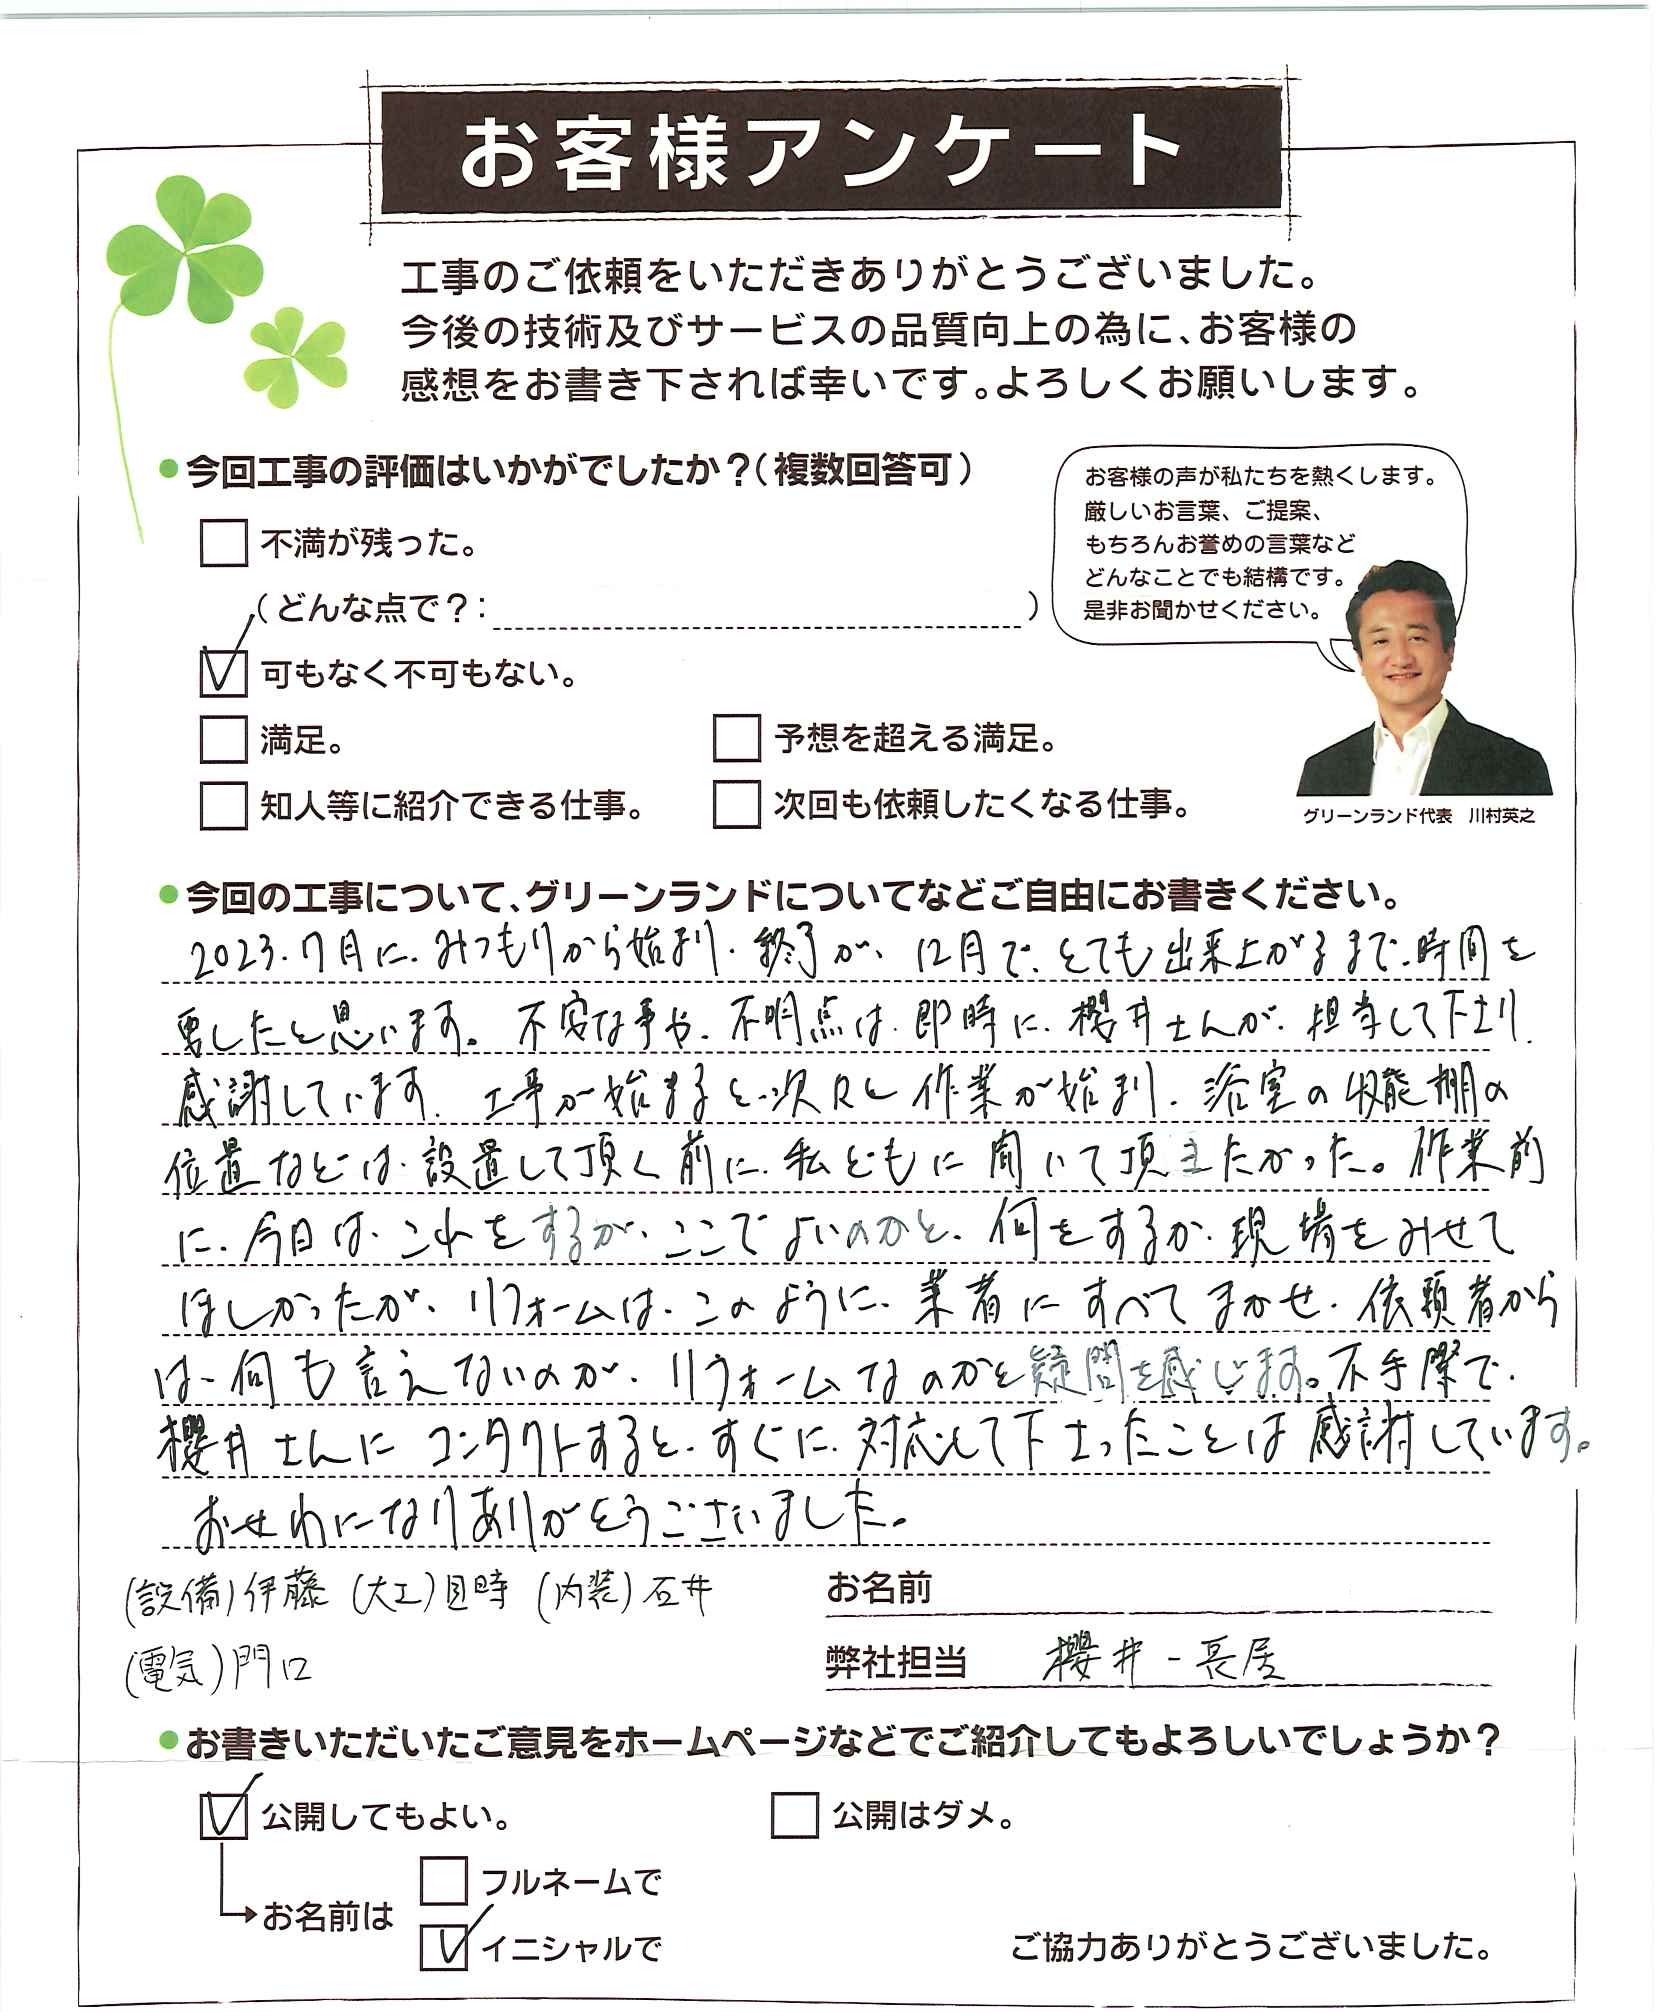 お客様アンケート
工事のご依頼をいただきありがとうございました。
今後の技術及びサービスの品質向上の為に、お客様の
感想をお書き下されば幸いです。よろしくお願いします。
●今回工事の評価はいかがでしたか?(複数回答可)
不満が残った。
(どんな点で?: )
可もなく不可もない。
満足。
予想を超える満足。
知人等に紹介できる仕事。
次回も依頼したくなる仕事。
お客様の声が私たちを熱くします。
厳しいお言葉、ご提案、
もちろんお誉めの言葉など
どんなことでも結構です。
是非お聞かせください。
グリーンランド代表 川村英之
●今回の工事について、グリーンランドについてなどご自由にお書きください。
2023.7月に、みつもりから始まり、終了が、12月で、とても出来上がるまで、時間を
要したと思います。不安な事や、不明点は、即時に、櫻井さんが、担当して下さり、
感謝しています。工事が始まると、次々と作業が始まり、浴室の収能棚の
位置などは、設置して頂く前に、私どもに聞いて頂きたかった。作業前
に、今日は、これをするが、ここでよいのかと、何をするか、現場をみせて
ほしかったが、リフォームは、このように、業者にすべてまかせ、依頼者から
は、何も言えないのが、リフォームなのかと疑問を感じます。不手際で、
櫻井さんにコンタクトすると、すぐに、対応して下さったことは感謝しています。
おせわになりありがとうございました。
(設備)伊藤 (大工)目時 (内装)石井
(電気)門口
お名前
弊社担当 櫻井-長居
●お書きいただいたご意見をホームページなどでご紹介してもよろしいでしょうか?
公開してもよい。
公開はダメ。
お名前は
フルネームで
イニシャルで
ご協力ありがとうございました。